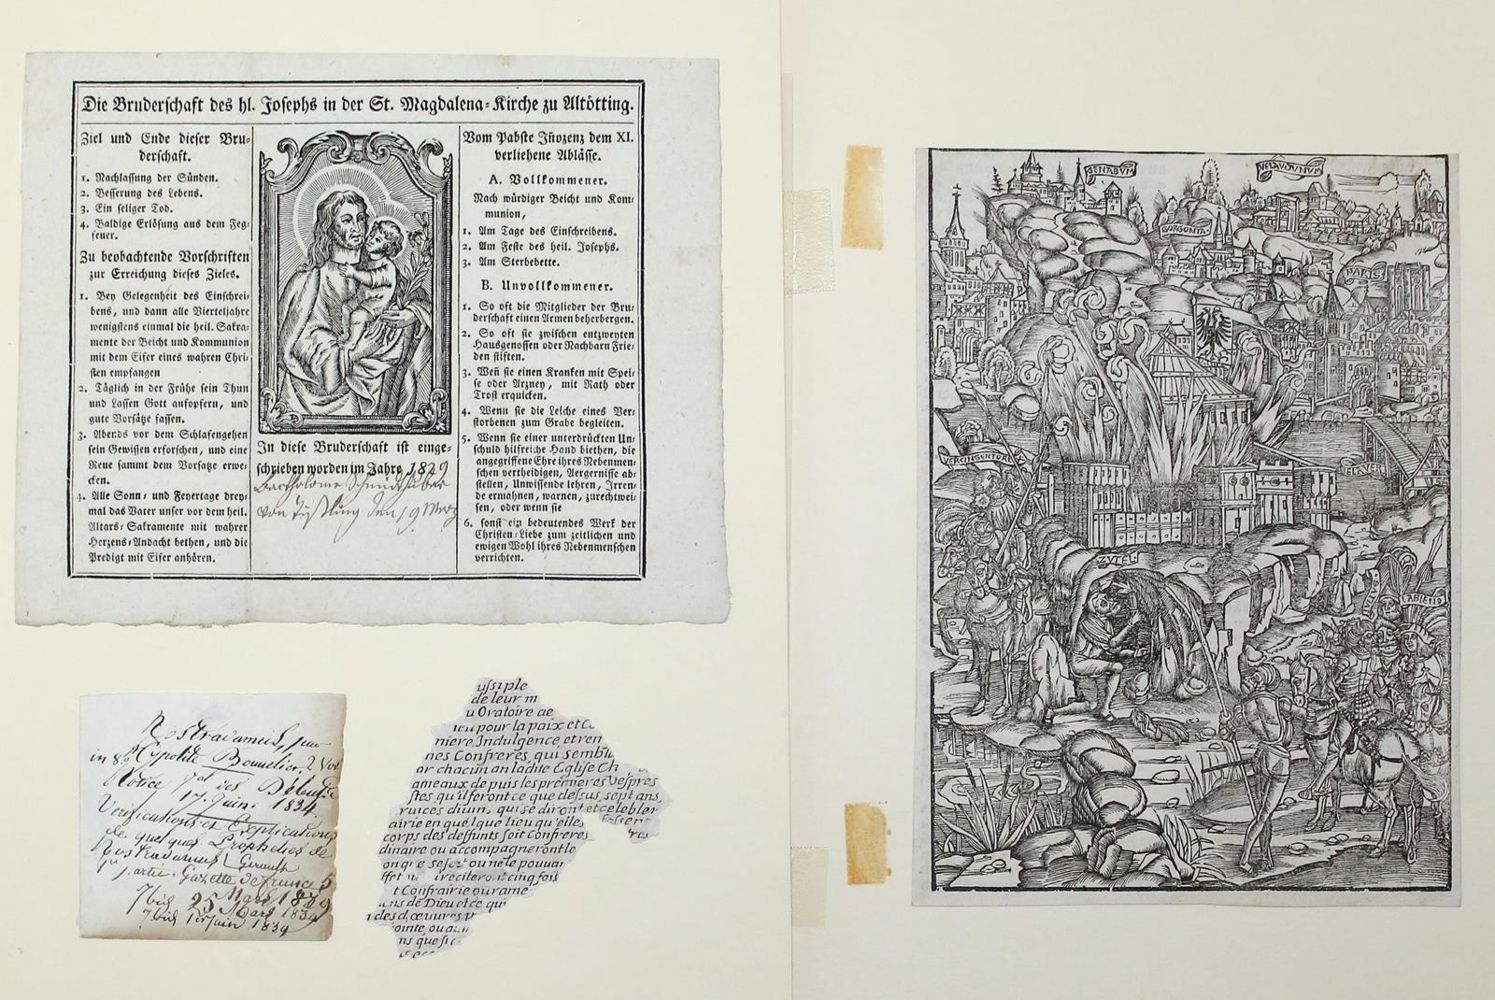 Die Bruderschaft des hl. Josephs in der St. Magdalena-Kirche zu Altötting.
Ziel und Ende dieser Bru-
derschaft.
1. Nachlassung der Sünden.
2. Besserung des Lebens.
3. Ein seliger Tod.
4. Baldige Erlösung aus dem Feg-
feuer.
Zu beobachtende Vorschriften
zur Erreichung dieses Zieles.
1. Bey Gelegenheit des Einschrei-
bens, und dann alle Vierteljahre
wenigstens einmal die heil. Sakra-
mente der Beicht und Kommunion
mit dem Eifer eines wahren Chri-
sten empfangen
2. Täglich in der Frühe sein Thun
und Lassen Gott aufopfern, und
gute Vorsätze fassen.
3. Abends vor dem Schlafengehen
sein Gewissen erforschen, und eine
Reue sammt dem Vorsatze erwe-
cken.
4. Alle Sonn- und Feyertage drey-
mal das Vater unser vor dem heil.
Altars-Sakramente mit wahrer
Herzens-Andacht bethen, und die
Predigt mit Eifer anhören.
In diese Bruderschaft ist einge-
schrieben worden im Jahre 1829
Bartholome Schmidhuber
von Tüßling den 19 Merz
Vom Pabste Iñozenz dem XI.
verliehene Ablässe.
A. Vollkommener.
Nach würdiger Beicht und Kom-
munion,
1. Am Tage des Einschreibens.
2. Am Feste des heil. Josephs.
3. Am Sterbebette.
B. Unvollkommener.
1. So oft die Mitglieder der Bru-
derschaft einen Armen beherbergen.
2. So oft sie zwischen entzweyten
Hausgenossen oder Nachbarn Frie-
den stiften.
3. Weñ sie einen Kranken mit Spei-
se oder Arzney, mit Rath oder
Trost erquicken.
4. Wenn sie die Leiche eines Ver-
storbenen zum Grabe begleiten.
5. Wenn sie einer unterdrückten Un-
schuld hilfreiche Hand biethen, die
angegriffene Ehre ihres Nebenmen-
schen vertheidigen, Aergernisse ab-
stellen, Unwissende lehren, Irren-
de ermahnen, warnen, zurechtwei-
sen, oder wenn sie
6. sonst ein bedeutendes Werk der
Christen-Liebe zum zeitlichen und
ewigen Wohl ihres Nebenmenschen
verrichten.
Nostradamus, par
in 8° Hypolite Bonnelier 2 Vol
Notice des Débats
17. Juin. 1834
Verifications et Explications
de quelques Prophéties de
Nostradamus Girault
partie. Gazette de France 5
Mars 1839
7bid 25 Mars 1839
7bid 1er Juin 1839
ussiple
de leur m
u Oratoire de
pour la paix et C
niere Indulgence, et ren
nes Confreres, qui semble
ar chacun an ladite Eglise Ch
ameaux de puis les premieres vespres
stes qu'il feront ce que dessus, sept ans,
ruices diuin, qui se diront et celebler
airie en quelque lieu qu'elles
corps des deffunts soit Confreres
dinaire ou accompagneront le
ou ne le pouuan
reciteront cinq fois
t Confrairie ou rame
uns de Dieu et ce qui
des d, œuures
ointe, ou au
ns que si
GENABVM
VELAVDVNVM
GORGONIA
PARIS
VERCINGENTORIX
ELAVER
LABIENVS